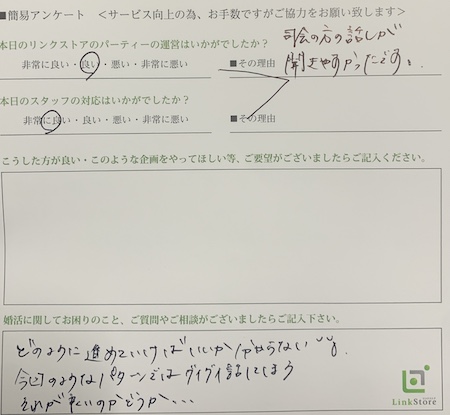 ■簡易アンケート ＜サービス向上の為、お手数ですがご協力をお願い致します＞
本日のリンクストアのパーティーの運営はいかがでしたか？
司会の方の話しが
非常に良い・良い・悪い・非常に悪い
■その理由
聞きやすかったです。
本日のスタッフの対応はいかがでしたか？
非常に良い・良い・悪い・非常に悪い
■その理由
こうした方が良い・このような企画をやってほしい等、ご要望がございましたらご記入ください。
婚活に関してお困りのこと、ご質問やご相談がございましたらご記入下さい。
どのように進めていけばいいか分からない
今回のようなパターンではグイグイ話してしまう
それが良いのかどうか、、、
LinkStore